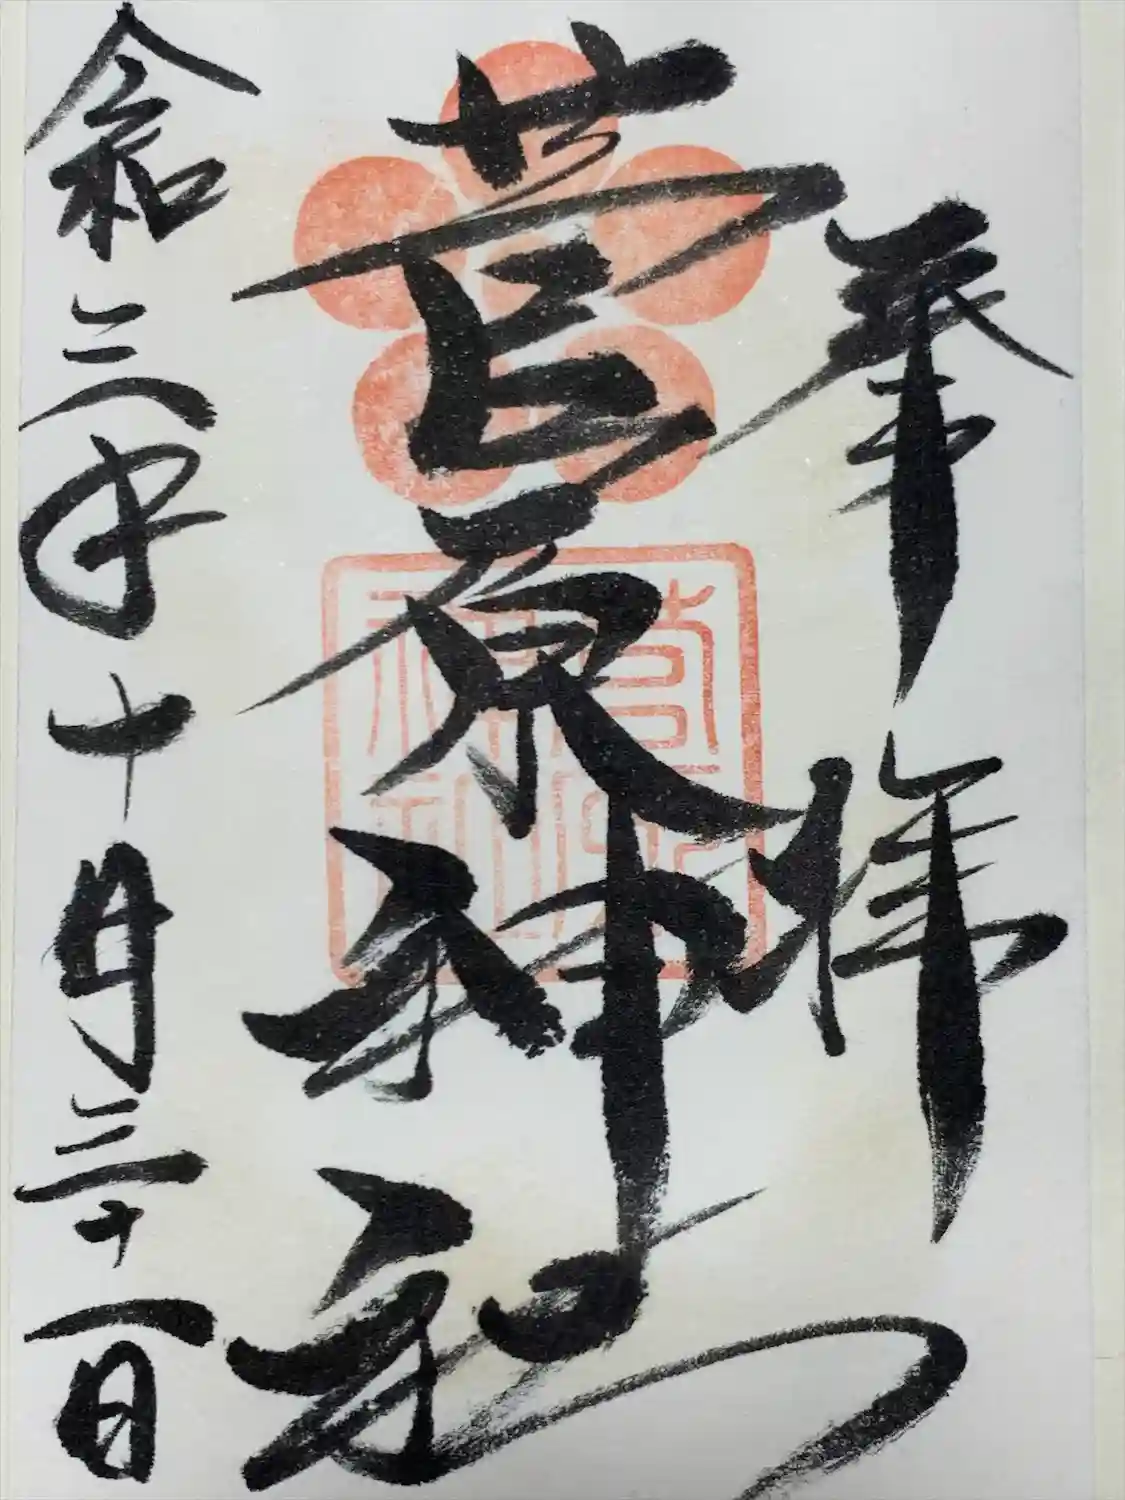 奉拝
菅原神社
令和三年十月三十一日
菅原
神社